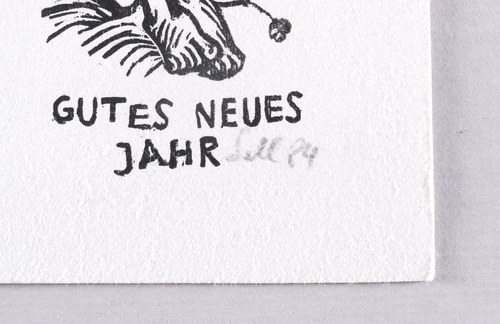 GUTES NEUES
JAHR 84